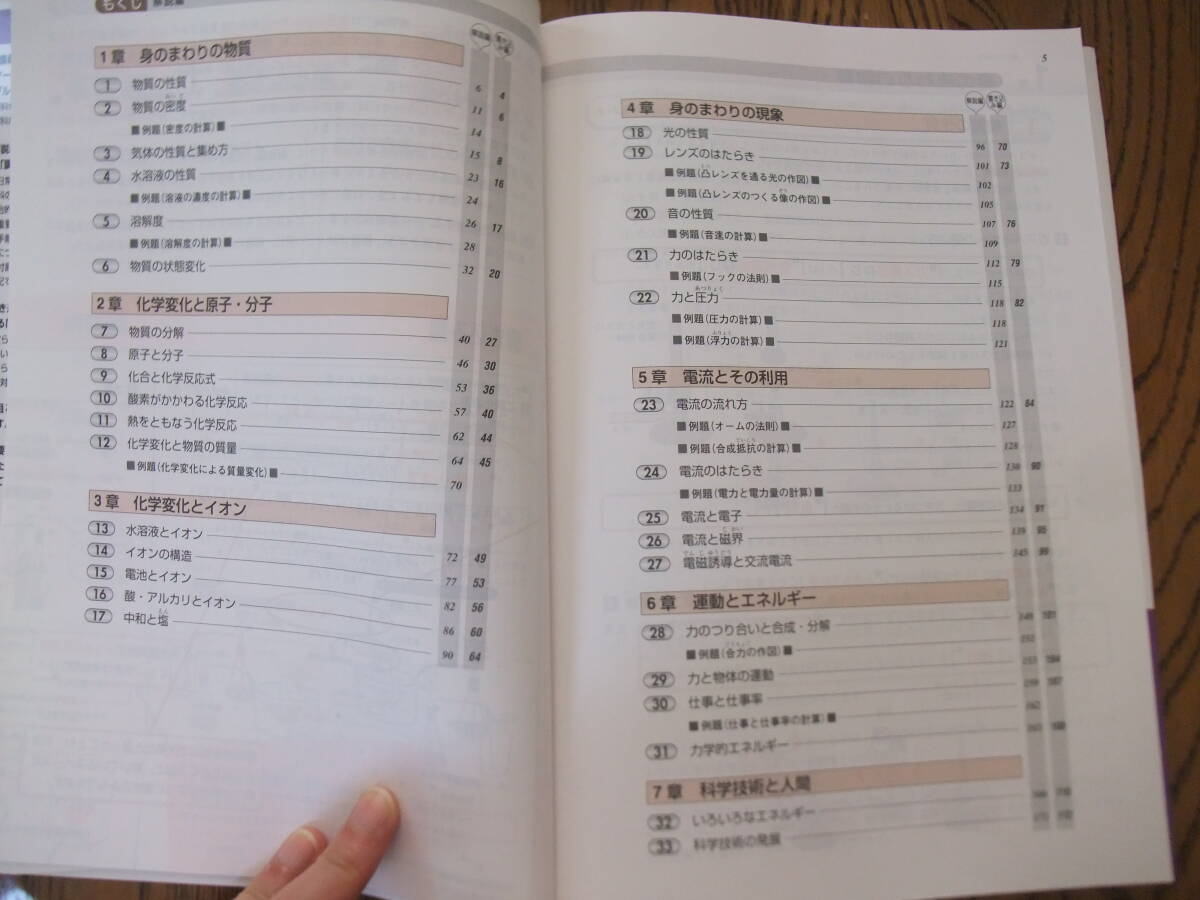 もくじ 解説編
解説編 書き込み編
1章 身のまわりの物質
1 物質の性質 6 4
2 物質の密度 11 6
■例題(密度の計算)■ 14
3 気体の性質と集め方 15 8
4 水溶液の性質 23 16
■例題(溶液の濃度の計算)■ 24
5 溶解度 26 17
■例題(溶解度の計算)■ 28
6 物質の状態変化 32 20
2章 化学変化と原子・分子
7 物質の分解 40 27
8 原子と分子 46 30
9 化合と化学反応式 53 36
10 酸素がかかわる化学反応 57 40
11 熱をともなう化学反応 62 44
12 化学変化と物質の質量 64 45
■例題(化学変化による質量変化)■ 70
3章 化学変化とイオン
13 水溶液とイオン 72 49
14 イオンの構造 77 53
15 電池とイオン 82 56
16 酸・アルカリとイオン 86 60
17 中和と塩 90 64
5
解説編 書き込み編
4章 身のまわりの現象
18 光の性質 96 70
19 レンズのはたらき 101 73
■例題(凸レンズを通る光の作図)■ 102
■例題(凸レンズのつくる像の作図)■ 105
20 音の性質 107 76
■例題(音速の計算)■ 109
21 力のはたらき 112 79
■例題(フックの法則)■ 115
22 力と圧力 118 82
■例題(圧力の計算)■ 118
■例題(浮力の計算)■ 121
5章 電流とその利用
23 電流の流れ方 122 84
■例題(オームの法則)■ 127
■例題(合成抵抗の計算)■ 128
24 電流のはたらき 130 90
■例題(電力と電力量の計算)■ 133
25 電流と電子 134 91
26 電流と磁界 139 95
27 電磁誘導と交流電流 145 99
6章 運動とエネルギー
28 力のつり合いと合成・分解
■例題(合力の作図)■
29 力と物体の運動
30 仕事と仕事率
■例題(仕事と仕事率の計算)■
31 力学的エネルギー
7章 科学技術と人間
32 いろいろなエネルギー
33 科学技術の発展